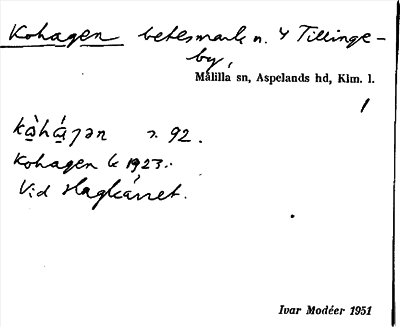 Kohagen betesmark n. Y Tillinge-
by,
Målilla sn, Aspelands hd, Klm. l.
1
kàhágən s. 92.
Kohagen k 1923.
Vid Hagkärret.
Ivar Modéer 1951